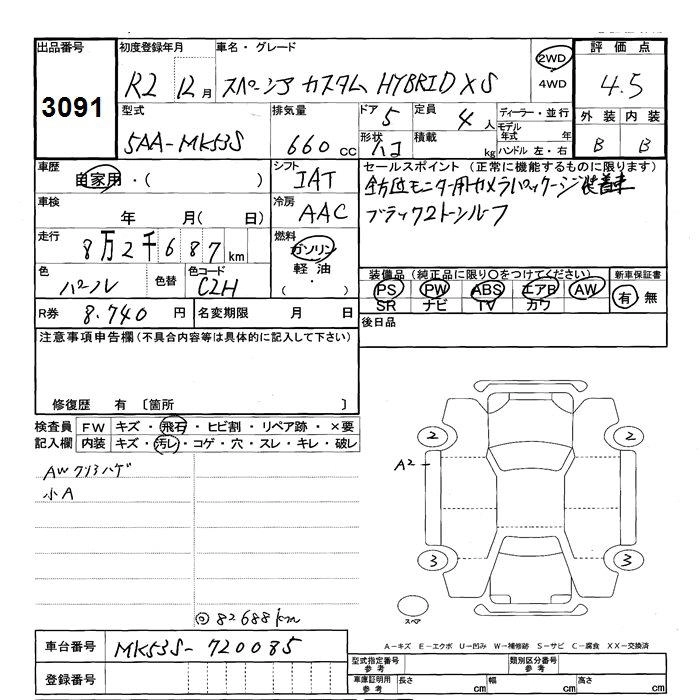 出品番号
3091
初度登録年月
R2 12月
車名・グレード
スペーシア カスタム HYBRID XS
2WD
4WD
評価点
4.5
型式
5AA-MK53S
排気量
660 cc
ドア 5
定員 4人
形状 ハコ
積載 kg
ディーラー・並行
モデル年式 年
ハンドル 左・右
外装 内装
B B
車歴
自家用・( )
シフト
IAT
セールスポイント (正常に機能するものに限ります)
全方位モニター用カメラパッケージ装着車
ブラック2トーンルーフ
車検
年 月( 日)
冷房
AAC
走行
8万2千687km
燃料
ガソリン
軽油
( ・ )
色
パープル
色替
色コード
CZH
装備品 (純正品に限り○をつけてください)
PS PW ABS エアB AW
SR ナビ TV カワ
新車保証書
有 無
R券 8.740 円
名変期限 月 日
後日品
注意事項申告欄 (不具合内容等は具体的に記入して下さい)
修復歴 有 〔箇所 〕
検査員
記入欄
FW キズ・飛石・ヒビ割・リペア跡・×要
内装 キズ・汚レ・コゲ・穴・スレ・キレ・破レ
AWクリアハゲ
小A
◎82688km
2 2
A2
3 3
スペア
A－キズ E－エクボ U－凹み W－補修跡 S－サビ C－腐食 XX－交換済
車台番号 MK53S-720085
登録番号
型式指定番号
参考
類別区分番号
参考
車庫証明用
参考
長さ cm 幅 cm 高さ cm